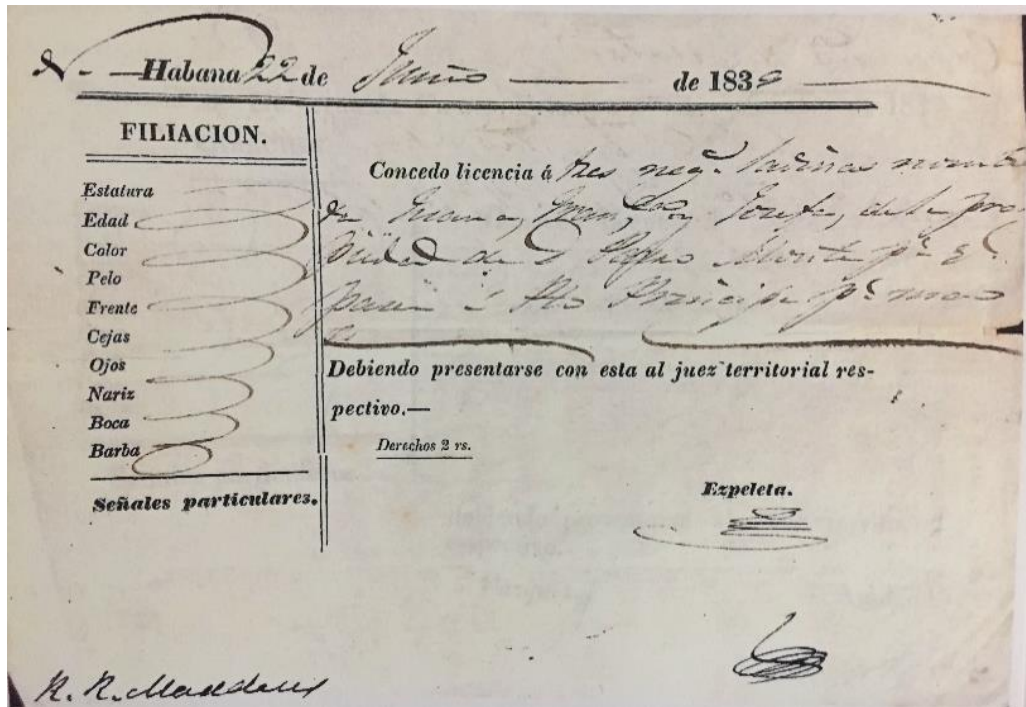 N. Habana 22 de Junio de 1839
FILIACION.
Estatura
Edad
Color
Pelo
Frente
Cejas
Ojos
Nariz
Boca
Barba
Señales particulares.
Concedo licencia á tres neg.s ladinas nombra
das Juana, y Josefa, de la pro
piedad de D Pedro Montes pa. q.
pasen á Pto Principe pr. mar
Debiendo presentarse con esta al juez territorial res-
pectivo.—
Derechos 2 rs.
Ezpeleta.
R. R. Madden